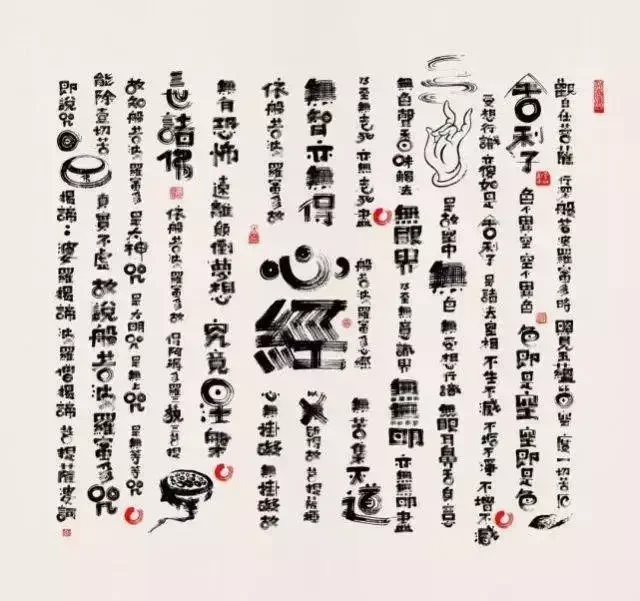 觀自在菩薩 行深般若波羅蜜多時 照見五蘊皆空 度一切苦厄
舍利子 色不異空 空不異色 色即是空 空即是色
受想行識 亦復如是 舍利子 是諸法空相 不生不滅 不垢不淨 不增不減
是故空中 無色 無受想行識 無眼耳鼻舌身意
無色聲香味觸法 無眼界 乃至無意識界 無無明 亦無無明盡
乃至無老死 亦無老死盡 般若波羅蜜多 無苦集 道
無智亦無得 所得故 菩提薩埵
心經
依般若波羅蜜多故 心無掛礙 無掛礙故
無有恐怖 遠離顛倒夢想 究竟涅槃
三世諸佛 依般若波羅蜜多故 得阿耨多羅三藐三菩提
故知般若波羅蜜多 是大神咒 是大明咒 是無上咒 是無等等咒
能除壹切苦 真實不虛 故說般若波羅蜜多咒
即說咒曰 揭諦 婆羅揭諦 波羅僧揭諦 菩提薩婆訶